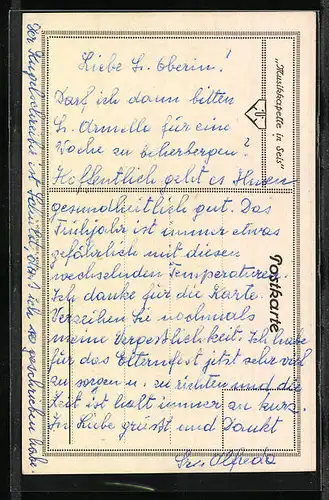 Liebe Sr. Oberin!
Darf ich dann bitten
Sr. Armella für eine
Woche zu beherbergen?
Hoffentlich geht es Ihnen
gesundheitlich gut. Das
Frühjahr ist immer etwas
gefährlich mit diesen
wechselnden Temperaturen.
Ich danke für die Karte.
Verzeihen Sie nochmals
meine Vergesslichkeit. Ich habe
für das Elternfest jetzt sehr viel
zu sorgen u. zu richten und die
Zeit ist halt immer zu kurz.
In Liebe grüsst und Dankt
Sr. Alfreda
ist ich so geschrieben habe.
„Musikkapelle in Seis“
Postkarte